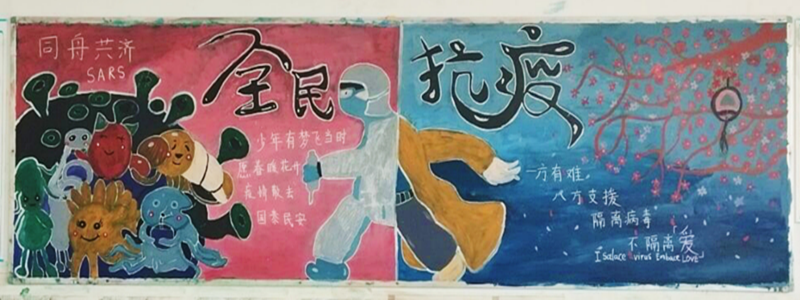 同舟共济
SARS
全民
少年有梦飞当时
愿春暖花开
疫情散去
国泰民安
抗疫
一方有难。
八方支援
隔离病毒
不隔离爱